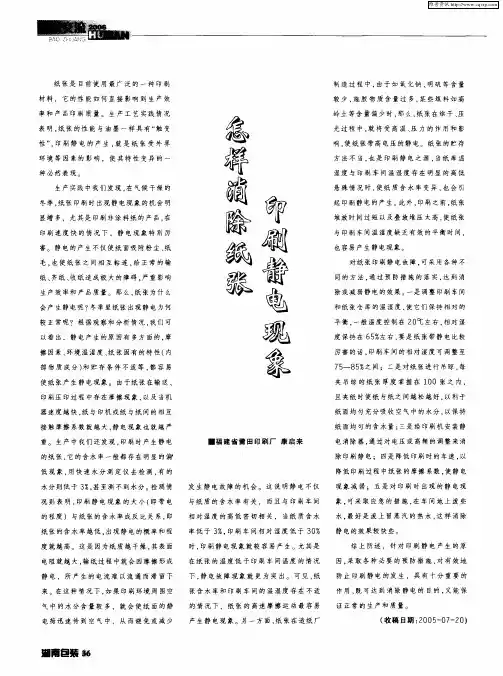 维普资讯 http://www.cqvip.com
2006
HUNAN
纸张是目前使用最广泛的一种印刷
材料,它的性能如何直接影响到生产效
率和产品印刷质量。生产工艺实践情况
表明,纸张的性能与油墨一样具有“触变
性”,印刷静电的产生,就是纸张受外界
环境等因素的影响,使其特性变异的一
种必然表现。
生产实践中我们发现,在气候干燥的
冬季,纸张印刷时出现静电现象的机会明
显增多,尤其是印刷非涂料纸的产品,在
印刷速度快的情况下,静电现象特别厉
害。静电的产生不仅使纸面吸附粉尘、纸
毛,也使纸张之间相互粘连,给正常的输
纸、齐纸、收纸造成极大的障碍,严重影响
生产效率和产品质量。那么,纸张为什么
会产生静电呢?冬季里纸张出现静电为何
较正常呢?根据观察和分析情况,我们可
以看出,静电产生的原因有多方面的,摩
擦因素、环境温湿度、纸张固有的特性(内
部物质成分)和贮存条件不适等,都容易
使纸张产生静电现象。由于纸张在输送、
印刷压印过程中存在摩擦现象,以及当机
器速度越快,纸与印机或纸与纸间的相互
接触摩擦系数就越大,静电现象也就越严
重。生产中我们还发现,印刷时产生静电
的纸张,它的含水率一般都存在明显的偏
低现象,用快速水分测定仪去检测,有的
水分则低于3%,甚至测不到水分。检测情
况则表明,印刷静电现象的大小(即带电
的程度)与纸张的含水率成反比关系,即
纸张的含水率越低,出现静电的概率和程
度就越高。这是因为纸质越干燥,其表面
电阻就越大,输纸过程中就会因摩擦形成
静电,所产生的电流难以流通而滞留下
来。在这种情况下,如果印刷环境周围空
气中的水分含量较多,就会使纸面的静
电荷迅速传到空气中,从而避免或减少
怎样消除纸张
印刷静电现象
■福建省莆田印刷厂 康启来
发生静电故障的机会。这说明静电不仅
与纸质的含水率有关,而且与印刷车间
相对湿度的高低密切相关,当纸质含水
率低于3%,印刷车间相对湿度低于30%
时,印刷静电现象就较容易产生。尤其是
在纸张的温度低于印刷车间温度的情况
下,静电故障现象就更为突出。可见,纸
张含水率和印刷车间的温湿度存在不适
的情况下,纸张的高速摩擦运动最容易
产生静电现象。另一方面,纸张在造纸厂
制造过程中,由于如氯化钠、明矾等含量
较少,施胶物质含量过多,某些填料如高
岭土等含量偏少时,那么,纸张在烘干、压
光过程中,就将受高温、压力的作用和影
响,使纸张带高电压的静电。纸张的贮存
方法不当,也是印刷静电之源,当纸库温
湿度与印刷车间温湿度存在明显的高低
悬殊情况时,使纸质含水率变异,也会引
起印刷静电的产生。此外,印刷之前,纸张
堆放时间过短以及叠放堆压太高,使纸张
与印刷车间温湿度缺乏有效的平衡时间,
也容易产生静电现象。
对纸张印刷静电故障,可采用各种不
同的方法,通过预防措施的落实,达到消
除或减弱静电的效果。一是调整印刷车间
和纸张仓库的温湿度,使它们保持相对的
平衡,一般温度控制在20℃左右,相对湿
度保持在65%左右,要是纸张带静电比较
厉害的话,印刷车间的相对湿度可调整至
75—85%之间;二是对纸张进行吊晾,每
夹吊晾的纸张厚度掌握在100张之内,
且夹纸时使纸与纸之间越松越好,以利于
纸面均匀充分吸收空气中的水分,以保持
纸面均匀的含水量;三是给印刷机安装静
电消除器,通过对电压或高频的调整来消
除印刷静电;四是降低印刷时的车速,以
降低印刷过程中纸张的摩擦系数,使静电
现象减弱;五是对印刷时出现的静电现
象,可采取应急的措施,在车间地上泼些
水,最好是泼上冒蒸汽的热水,这样消除
静电的效果较快些。
综上所述,针对印刷静电产生的原
因,采取各种必要的预防措施,对有效地
防止印刷静电的发生,具有十分重要的
作用,既可达到消除静电的目的,又能保
证正常的生产和质量。
(收稿日期:2005-07-20)
湖南包装 36